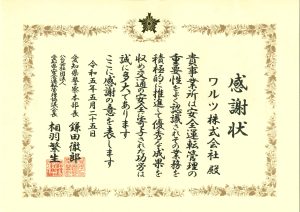 感謝状
ワルツ株式会社 殿
貴事業所は安全運転管理の
重要性をよく認識されその業務を
積極的に推進して優秀な成果を
収め交通の安全に寄与された功労は
誠に多大であります
ここに感謝の意を表します
令和五年五月二十五日
愛知県警察本部長 鎌田徹郎
公益社団法人